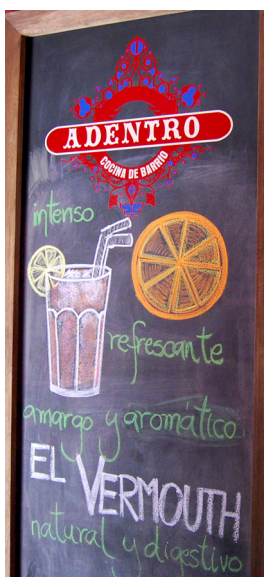 ADENTRO
COCINA DE BARRIO
intenso
refrescante
amargo y aromático
EL VERMOUTH
natural y digestivo